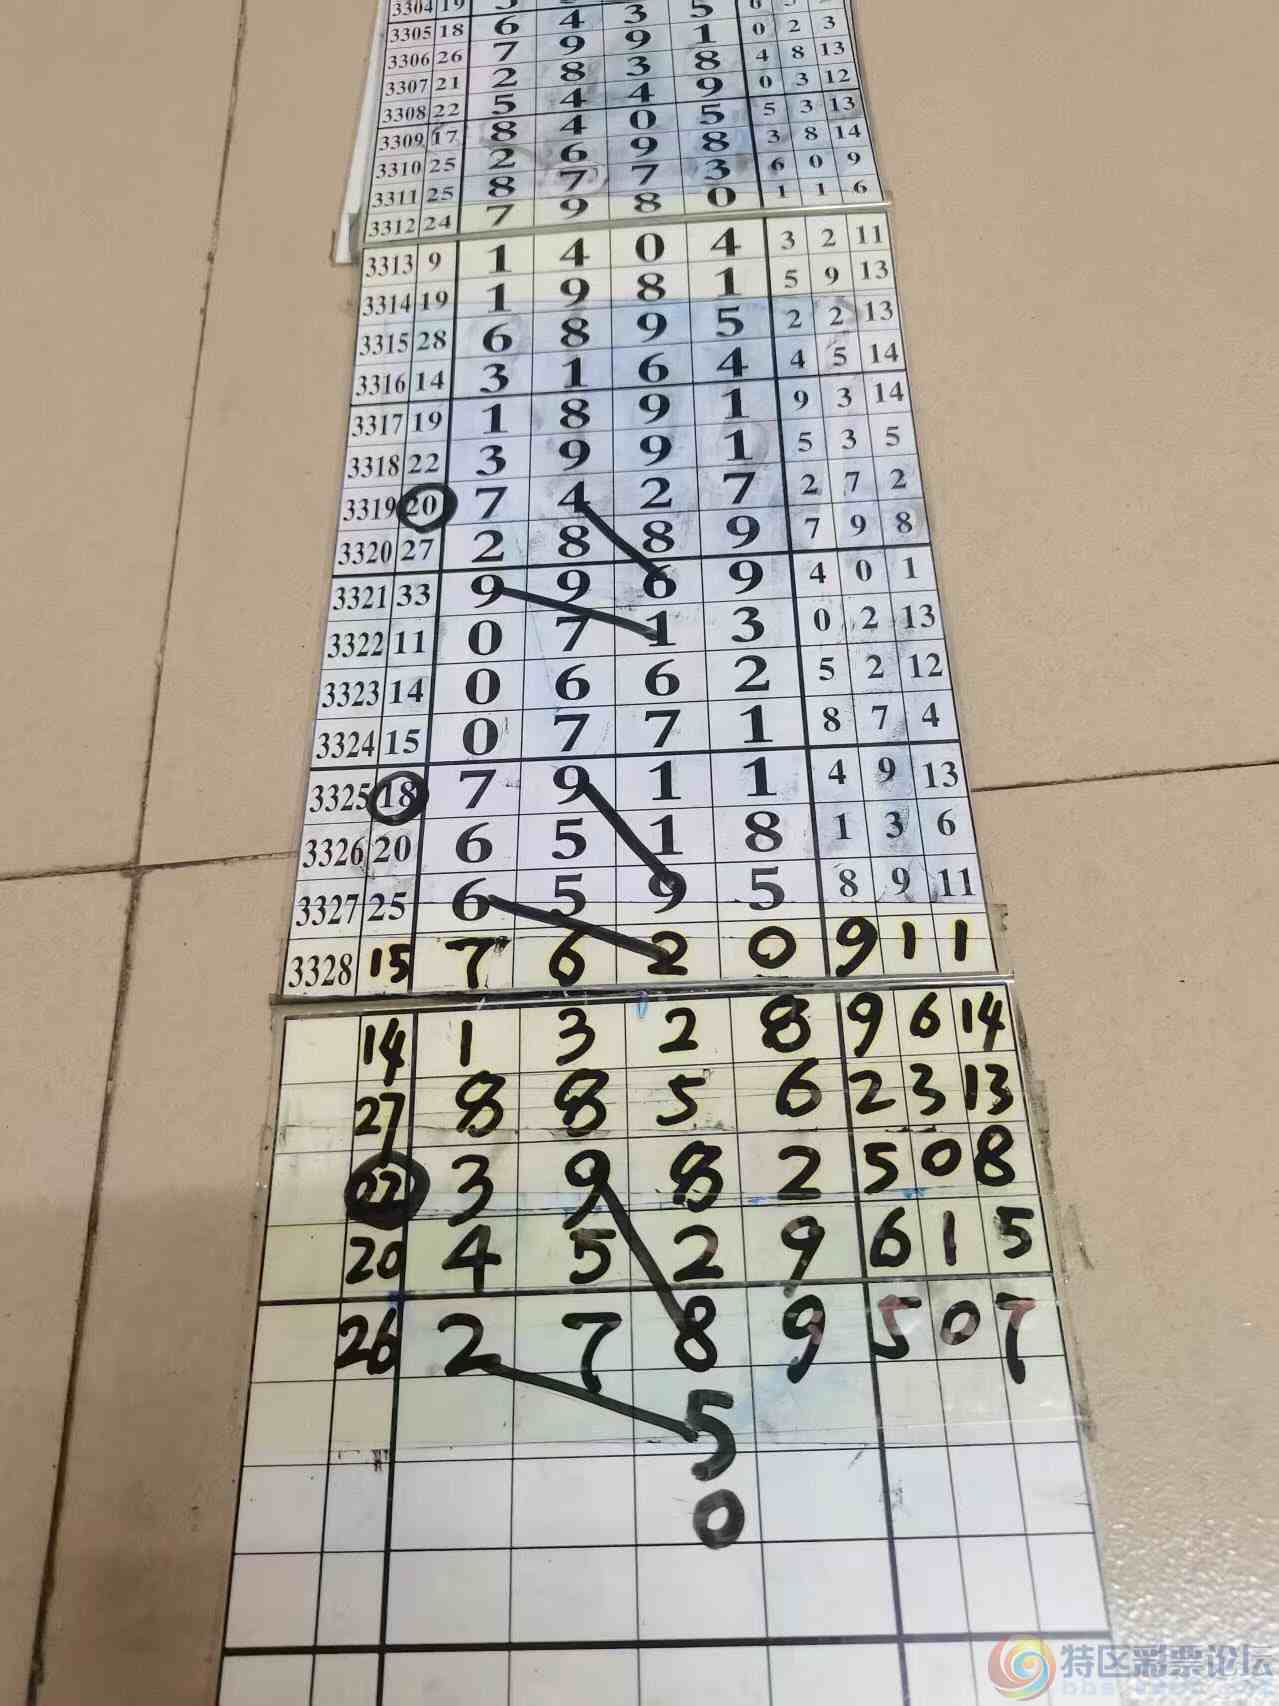 3304 19
3305 18 6 4 3 5 0 2 3
3306 26 7 9 9 1 4 8 13
3307 21 2 8 3 8 0 3 12
3308 22 5 4 4 9 5 3 13
3309 17 8 4 0 5 3 8 14
3310 25 2 6 9 8 6 0 9
3311 25 8 7 7 3 1 1 6
3312 24 7 9 8 0
3313 9 1 4 0 4 3 2 11
3314 19 1 9 8 1 5 9 13
3315 28 6 8 9 5 2 2 13
3316 14 3 1 6 4 4 5 14
3317 19 1 8 9 1 9 3 14
3318 22 3 9 9 1 5 3 5
3319 20 7 4 2 7 2 7 2
3320 27 2 8 8 9 7 9 8
3321 33 9 9 6 9 4 0 1
3322 11 0 7 1 3 0 2 13
3323 14 0 6 6 2 5 2 12
3324 15 0 7 7 1 8 7 4
3325 18 7 9 1 1 4 9 13
3326 20 6 5 1 8 1 3 6
3327 25 6 5 9 5 8 9 11
3328 15 7 6 2 0 9 1 1
14 1 3 2 8 9 6 14
27 8 8 5 6 2 3 13
3 9 8 2 5 0 8
20 4 5 2 9 6 1 5
26 2 7 8 9 5 0 7
5
0
特区彩票论坛